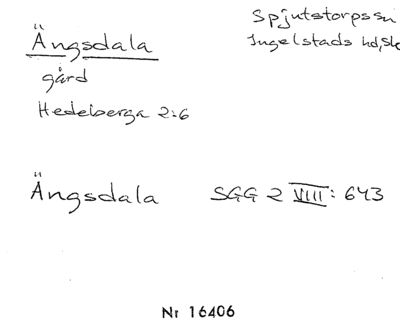 Ängsdala
Spjutstorps sn
Ingelstads hd, Sk
gård
Hedeberga 2:6
Ängsdala SGG 2 VIII: 643
Nr 16406